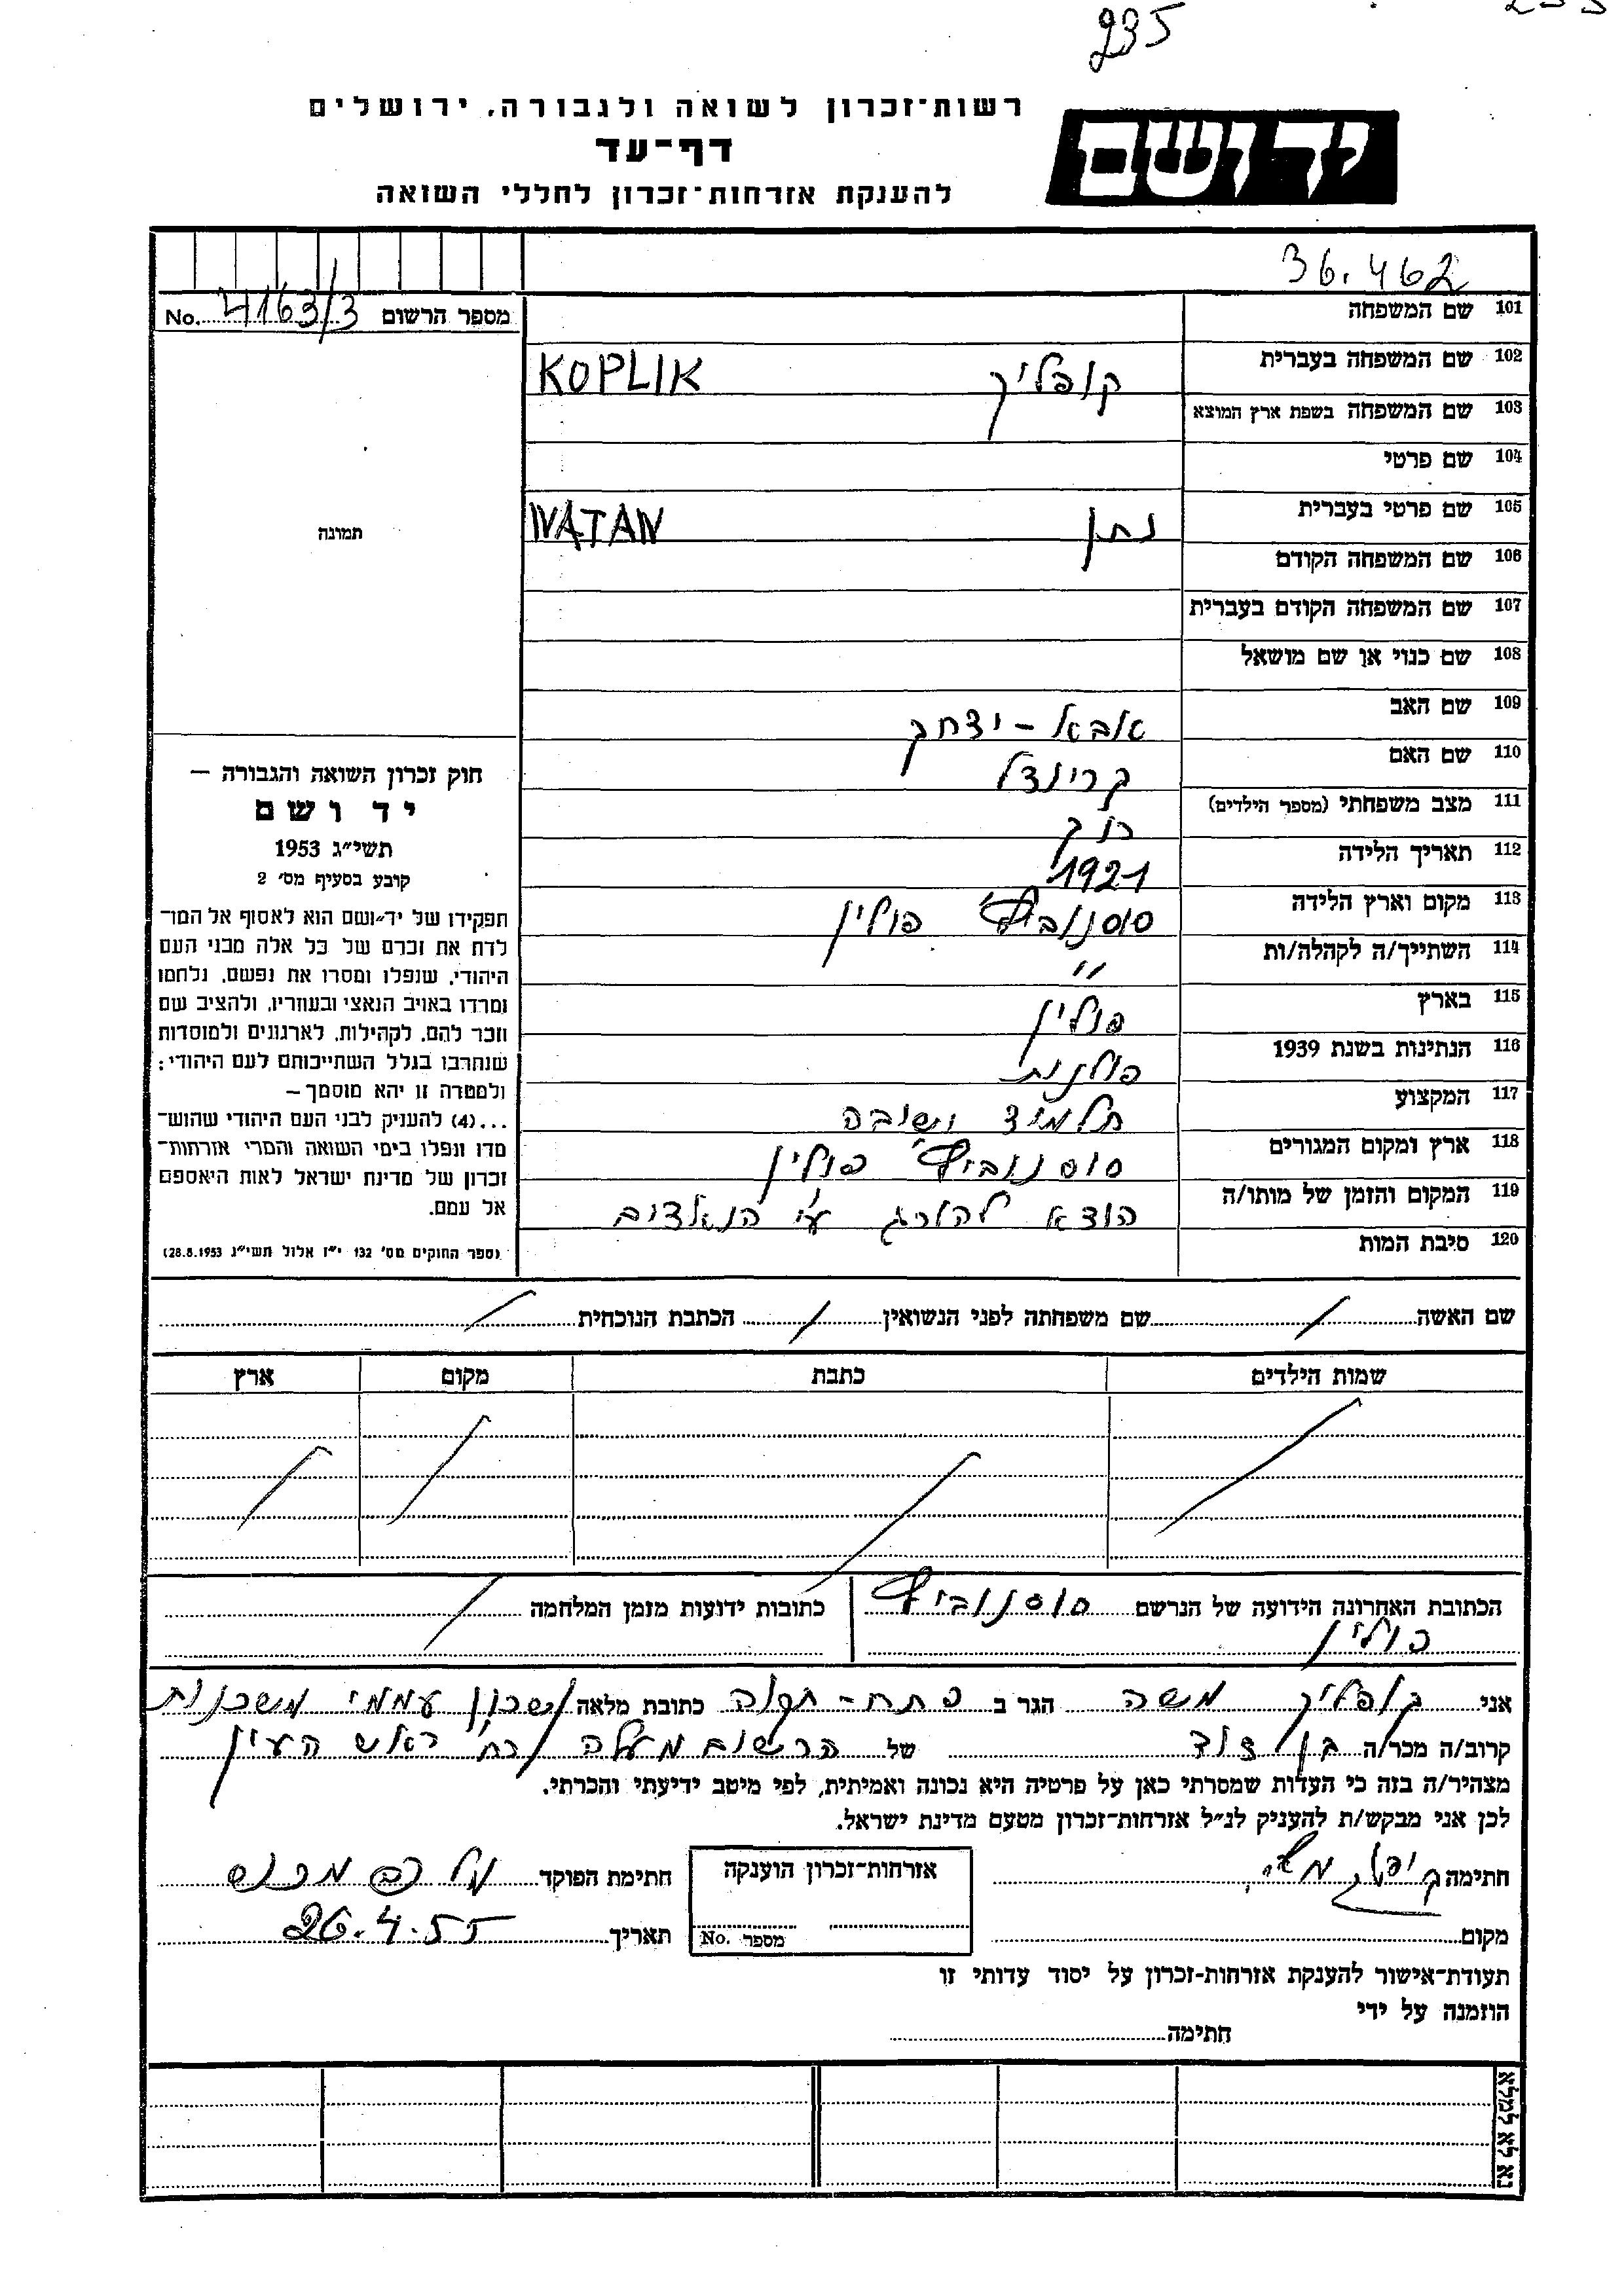 235
רשות־זכרון לשואה ולגבורה, ירושלים
דף־עד
להענקת אזרחות־זכרון לחללי השואה
יד ושם
36.462
מספר הרשום No. 4163/3
101 שם המשפחה
102 שם המשפחה בעברית קופליק KOPLIK
103 שם המשפחה בשפת ארץ המוצא
104 שם פרטי
105 שם פרטי בעברית נתן NATAN
106 שם המשפחה הקודם
107 שם המשפחה הקודם בעברית
108 שם כנוי או שם מושאל
109 שם האב אבא - יצחק
110 שם האם קרינדל
111 מצב משפחתי (מספר הילדים) רוק
112 תאריך הלידה 1921
113 מקום וארץ הלידה סוסנוביץ פולין
114 השתייך/ה לקהלה/ות "
115 בארץ פולין
116 הנתינות בשנת 1939 פולנית
117 המקצוע תלמיד ישיבה
118 ארץ ומקום המגורים סוסנוביץ פולין
119 המקום והזמן של מותו/ה הוצא להורג ע"י הנאצים
120 סיבת המות
תמונה
חוק זכרון השואה והגבורה —
יד ושם
תשי״ג 1953
קובע בסעיף מס׳ 2
תפקידו של יד־ושם הוא לאסוף אל המו־
לדת את זכרם של כל אלה מבני העם
היהודי, שנפלו ומסרו את נפשם, נלחמו
ומרדו באויב הנאצי ובעוזריו, ולהציב שם
וזכר להם, לקהילות, לארגונים ולמוסדות
שנחרבו בגלל השתייכותם לעם היהודי;
ולמטרה זו יהא מוסמך—
...(4) להעניק לבני העם היהודי שהוש־
מדו ונפלו בימי השואה והמרי אזרחות־
זכרון של מדינת ישראל לאות היאספם
אל עמם.
(ספר החוקים מס׳ 132 י״ז אלול תשי״ג 28.8.1953)
שם האשה שם משפחתה לפני הנשואין הכתבת הנוכחית
שמות הילדים כתבת מקום ארץ
הכתובת האחרונה הידועה של הנרשם סוסנוביץ
פולין
כתובות ידועות מזמן המלחמה
אני קופליק משה הגר ב פתח - תקוה כתובת מלאה שכון עממי משכנות
קרוב/ה מכר/ה בן דוד של הרשום מעלה רח' ראש העין
מצהיר/ה בזה כי העדות שמסרתי כאן על פרטיה היא נכונה ואמיתית, לפי מיטב ידיעתי והכרתי.
לכן אני מבקש/ת להעניק לנ״ל אזרחות־זכרון מטעם מדינת ישראל.
חתימה
אזרחות־זכרון הוענקה
חתימת הפוקד
מקום
מספר No.
תאריך 26.4.55
תעודת־אישור להענקת אזרחות-זכרון על יסוד עדותי זו
הוזמנה על ידי
חתימה
נא לא למלא